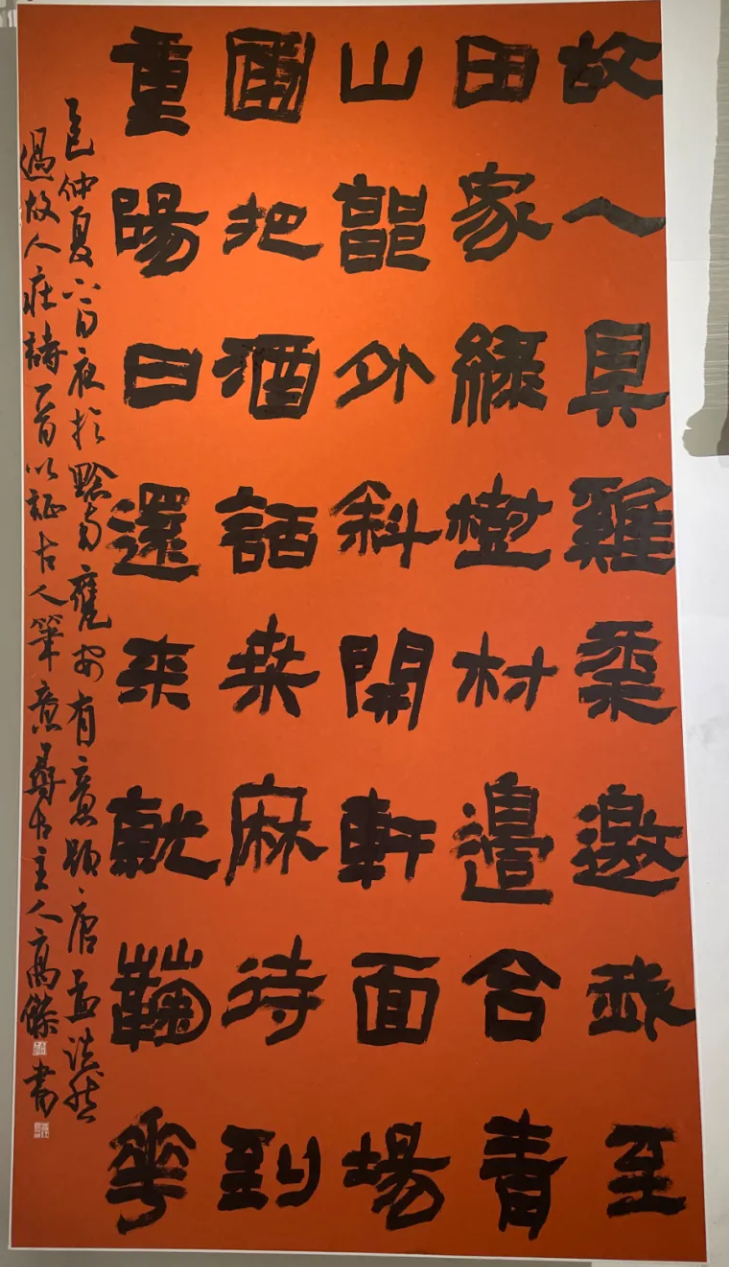 故人具雞黍邀我至
田家綠樹村邊合青
山郭外斜開軒面場
圃把酒話桑麻待到
重陽日還來就蘜花
乙巳仲夏夜於黔南甕安有意題唐孟浩然
過故人庄詩一首以証古人筆意尋古主人高傑書